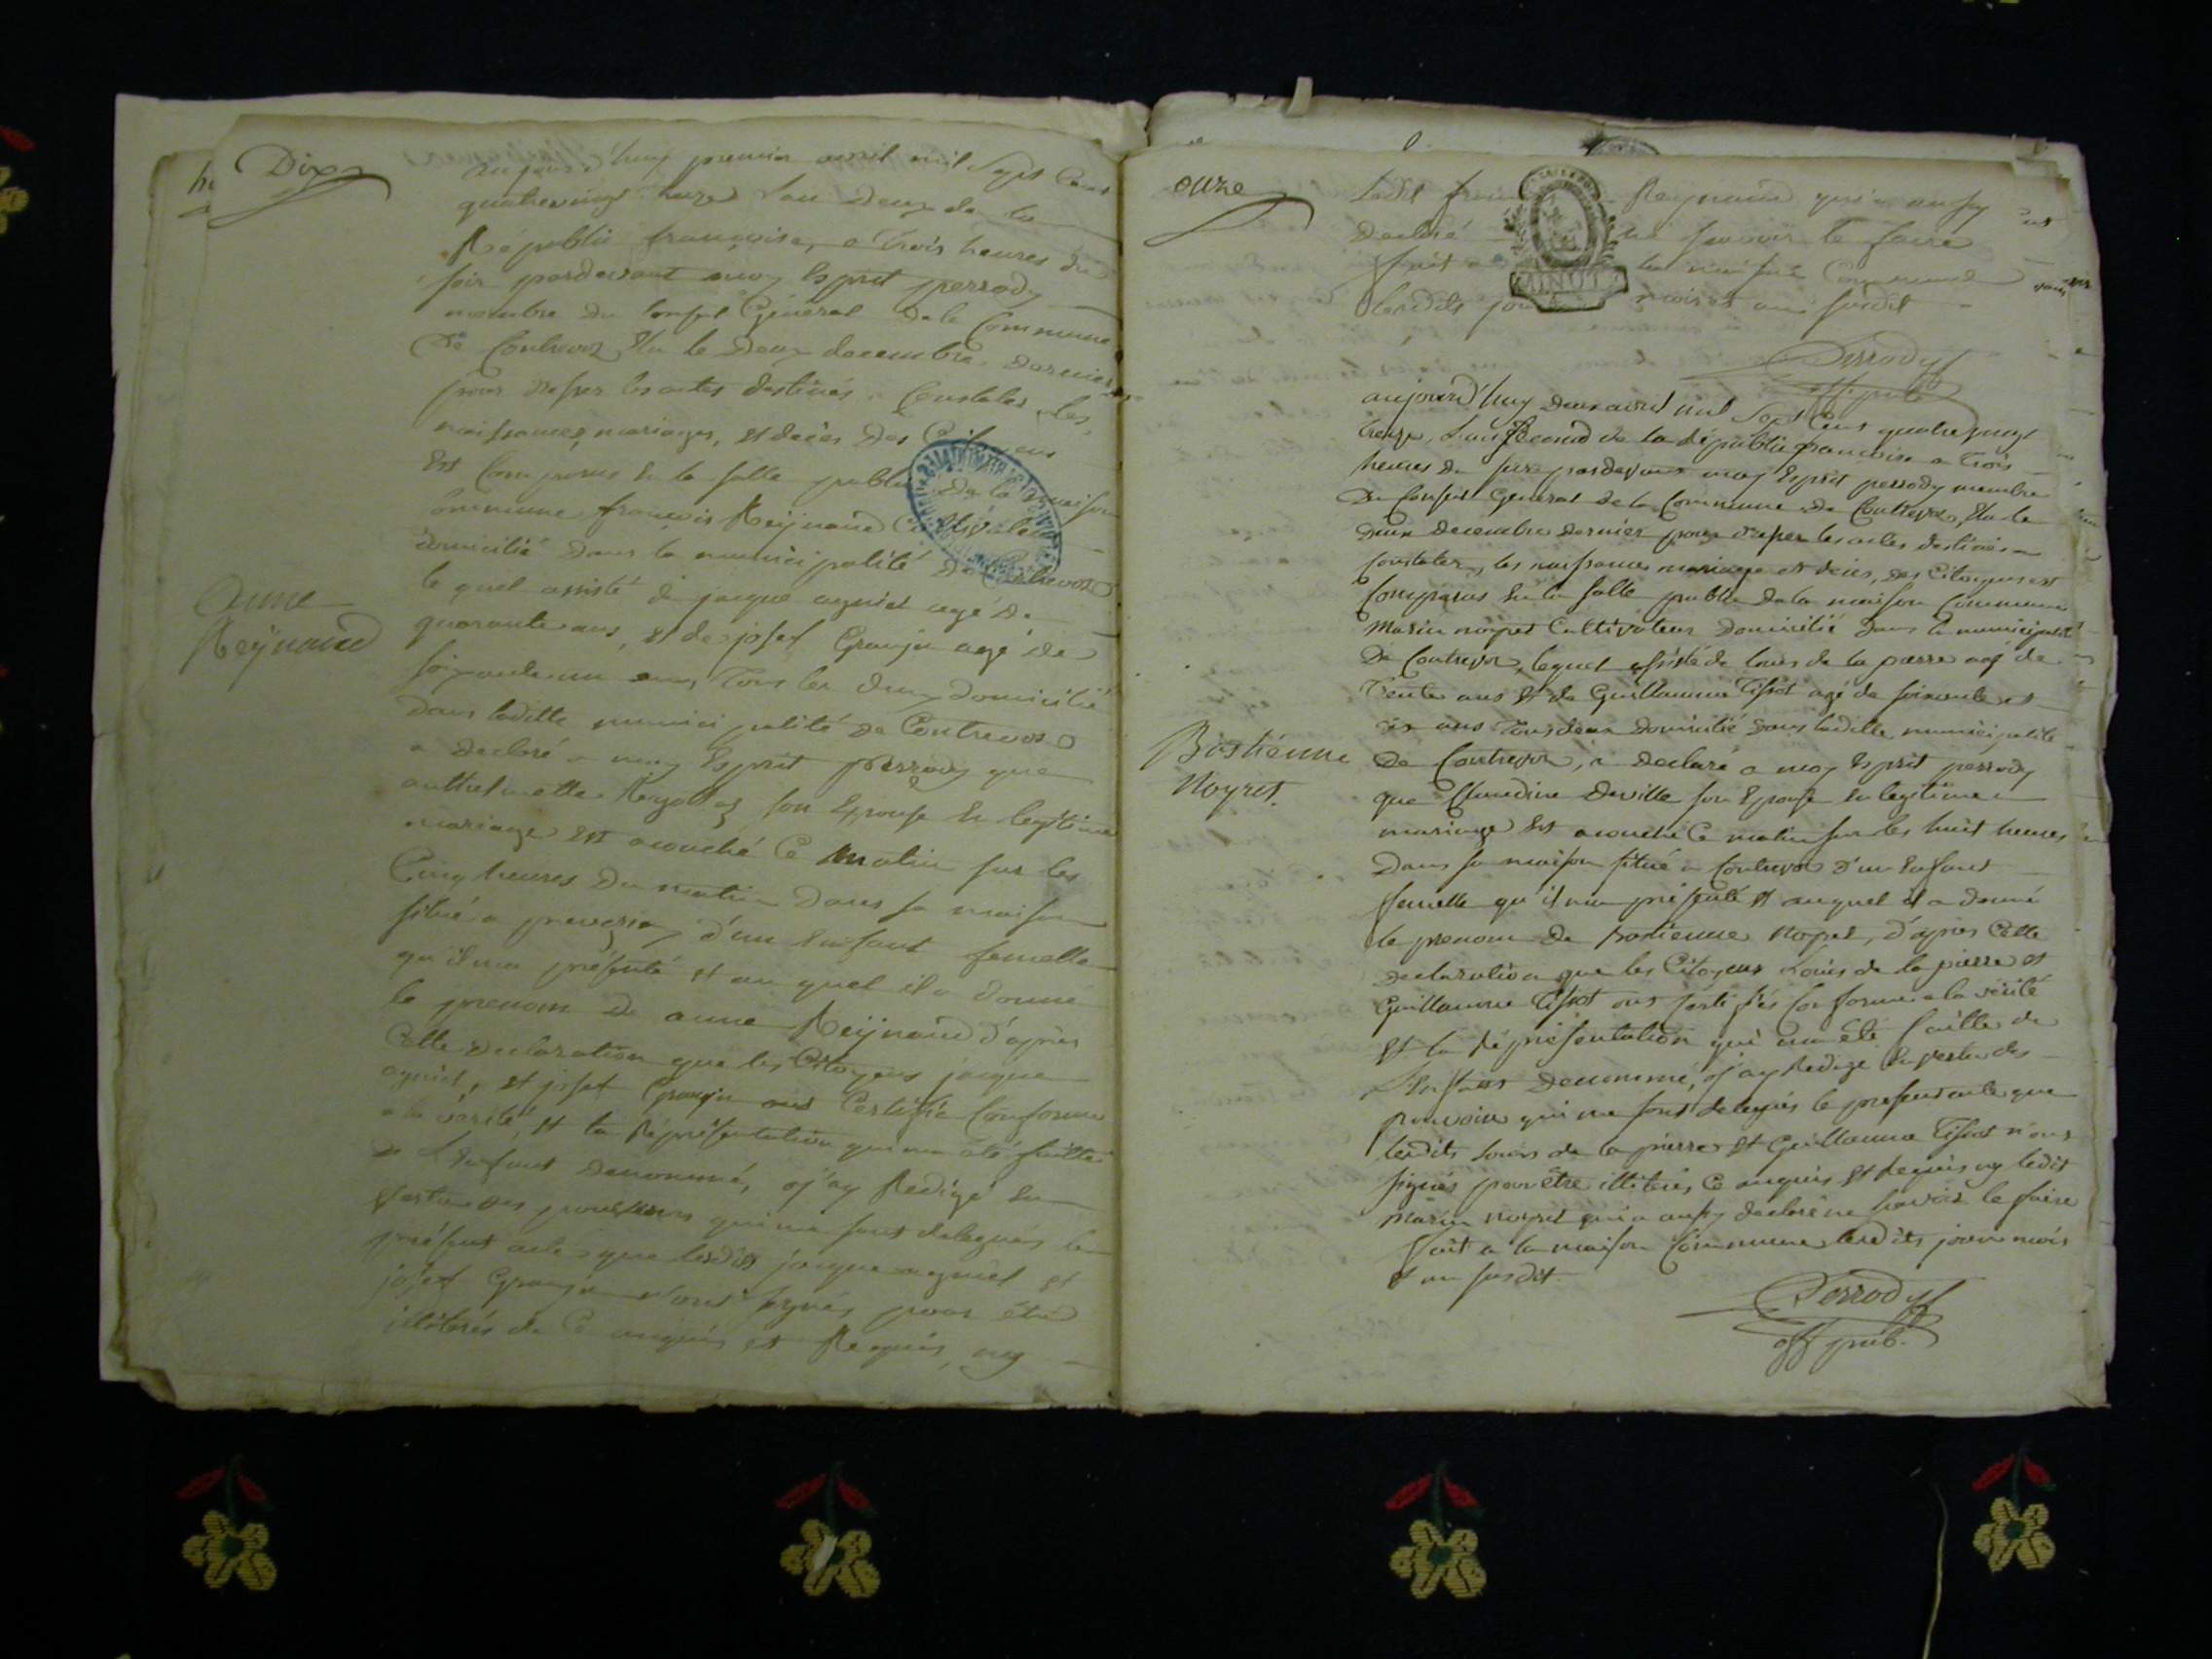 Dix
aujourd'huy premier avril mil Sept Cent
quatrevingt treize L'an Deux de la
République françoise, a trois heures du
soir pardevant moy Esprit perrody
membre du Conseil Général de la Commune
De Contrevoz Elu le Deux decembre dernier
pour dresser les actes destinés a Constater les
naissances, mariages, et décès des Citoyens
Est Comparus En la salle publique de la maison
Commune françois Reÿnaud Cultivateur
domicilié Dans la municipalité De Contrevoz
le quel assisté de jacque agniel agé De
quarante ans, et de josef Granju agé de
soixante un ans Tous les deux domicilié
Dans laditte municipalité de Contrevoz
a Declaré a moy Esprit perrody que
anthelmette son Epouse En legitime
mariage Est acouché Ce matin sur les
Cinq heures Du matin Dans sa maison
situé a d'un Enfant femelle
qu'il ma présenté et au quel il a donné
le prenom De anne Reÿnaud d'après
Cette declaration que les Citoyens jacque
agniel, et josef Granju ont Certifié Conforme
a la vérité, et la Représentation qui ma été faitte
de L'Enfant Denommé, j'ay Redigé En
vertu des pouvoirs qui me sont delegués le
présent acte que lesdits jacque agniel et
josef Granju n'ont signés pour être
illiterés de Ce enquis et Requis, ny
Anne
Reÿnaud
onze
Ledit Reynaud qui a aussy
Declaré ne savoir le faire
fait a la maison Commune
lesdits jour mois et an susdit
Perrody
off pub
aujourd'huy deux avril mil Sept Cent quatre vingt
treize, L'an Second de la République francoise a Trois
heures du soir pardevant moy Esprit perrody membre
Du Conseil General de la Commune De Contrevoz, Elu le
deux decembre dernier pour dresser les actes destinés a
Constater, les naissances mariage et décès, des Citoyens est
Comparus En la salle publique de la maison Commune
Marin noyret Cultivateur Domicilié dans la municipalité
De Contrevoz, lequel assisté de louis de la pierre agé de
Trente ans et de Guillaume Tissot agé de soixante et
six ans Tous deux domicilié dans laditte municipalité
De Contrevoz, a Declaré a moy Esprit perrody
que Claudine Deville son Epouse En legitime
mariage Est acouché Ce matin sur les huit heures
Dans sa maison situé a Contrevoz d'un Enfant
femelle qu'il ma présenté et auquel il a donné
le prenom De bastienne Noyret, d'après Cette
declaration que les Citoyens Louis de la pierre et
Guillaume Tissot ont Certifiés Conforme a la vérité
et la Représentation qui ma été faitte de
L'Enfant Denommé, j'ay Redigé En vertu des
pouvoirs qui me sont delegués le present acte que
lesdits Louis de la pierre et Guillaume Tissot n'ont
signés pour être illiterés, Ce enquis et Requis ny ledit
Marin noyret qui a aussy declaré ne savoir le faire
Fait a la maison Commune lesdits jour mois
et an susdit.
Perrody
off pub.
Bastienne
Noyret.